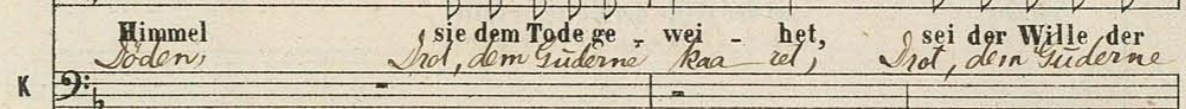 Himmel sie dem Tode ge - wei - het, sei der Wille der
Döden, Drot, dem Guderne kaa - ret, Drot, dem Guderne
K